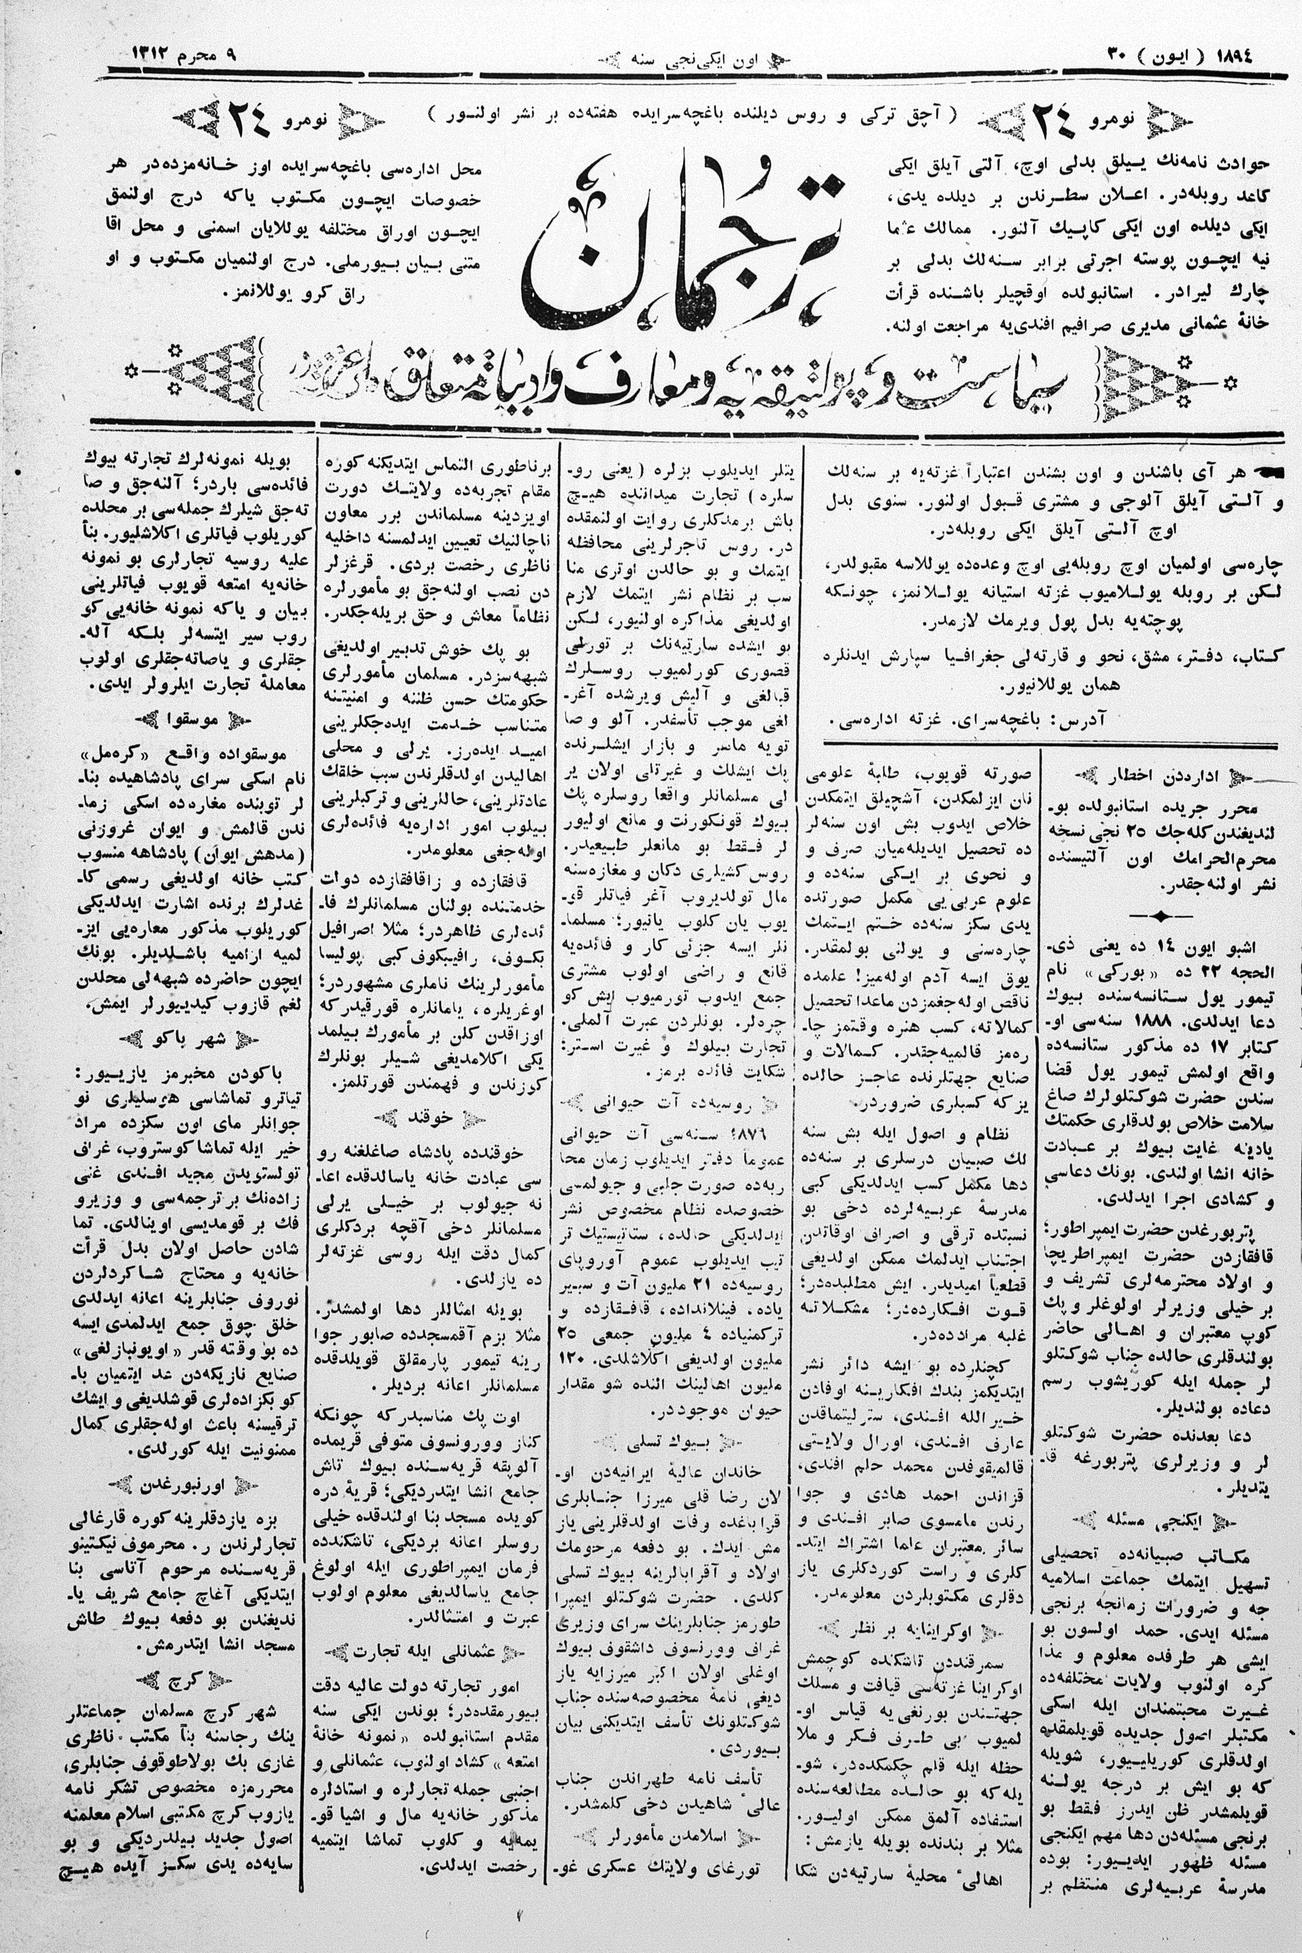 ١٨٩٤ ( ایون ) ٣٠
اون ایکی نجی سنه
٩ محرم ١٣١٢
نومرو ٢٤
( آچق ترکی و روس دیلنده باغچه‌سرایده هفته‌ده بر نشر اولنور )
نومرو ٢٤
حوادث نامه‌نك ییلق بدلی اوچ، آلتی آیلق ایکی
کاغد روبله‌در. اعلان سطرندن بر دیلده یدی،
ایکی دیلده اون ایکی کاپیك آلنور. ممالك عثما
نیه ایچون پوسته اجرتی برابر سنه‌لك بدلی بر
چارك لیرادر. استانبولده اوقچیلر باشنده قرأت
خانۀ عثمانی مدیری صرافیم افندی‌یه مراجعت اولنه.
ترجمان
محل اداره‌سی باغچه‌سرایده اوز خانه‌مزده‌در هر
خصوصات ایچون مکتوب یاکه درج اولنمق
ایچون اوراق مختلفه یوللایان اسمنی و محل اقا
متنی بیان بیورملی. درج اولنمیان مکتوب و او
راق کرو یوللانمز.
سیاست و پولیتیقه‌یه و معارف و ادبیاته متعلق
هر آی باشندن و اون بشندن اعتباراً غزته‌یه بر سنه‌لك
و آلتی آیلق آلوجی و مشتری قبول اولنور. سنوی بدل
اوچ آلتی آیلق ایکی روبله‌در.
چاره‌سی اولمیان اوچ روبله‌یی اوچ وعده‌ده یوللاسه مقبولدر،
لکن بر روبله یوللامیوب غزته استیانه یوللانمز، چونکه
پوچته‌یه بدل پول ویرمك لازمدر.
کتاب، دفتر، مشق، نحو و قارته‌لی جغرافیا سپارش ایدنلره
همان یوللانیور.
آدرس: باغچه‌سرای. غزته اداره‌سی.
اداره‌دن اخطار
محرر جریده استانبولده بو-
لندیغندن کله‌جك ٢٥ نجی نسخه
محرم الحرامك اون آلتیسنده
نشر اولنه‌جقدر.
اشبو ایون ١٤ ده یعنی ذی-
الحجه ٢٢ ده «بورکی» نام
تیمور یول ستانسه‌سنده بیوك
دعا ایدلدی. ١٨٨٨ سنه‌سی او-
کتابر ١٧ ده مذکور ستانسه‌ده
واقع اولمش تیمور یول قضا
سندن حضرت شوکتلولرك صاغ
سلامت خلاص بولدقلری حکمتك
یادینه غایت بیوك بر عبادت
خانه انشا اولندی. بونك دعاسی
و کشادی اجرا ایدلدی.
پتربورغدن حضرت ایمپراطور؛
قافقازدن حضرت ایمپراطریچا
و اولاد محترمه‌لری تشریف و
بر خیلی وزیرلر اولوغلر و پك
کوپ معتبران و اهالی حاضر
بولندقلری حالده جناب شوکتلو
لر جمله ایله کوریشوب رسم
دعاده بولندیلر.
دعا بعدنده حضرت شوکتلو
لر و وزیرلری پتربورغه قا-
یتدیلر.
ایکنجی مسئله
مکاتب صبیانه‌ده تحصیلی
تسهیل ایتمك جماعت اسلامیه
جه و ضرورات زمانجه برنجی
مسئله ایدی. حمد اولسون بو
ایشی هر طرفده معلوم و مذا
کره اولنوب ولایات مختلفه‌ده
غیرت محبتمندان ایله اسکی
مکتبلر اصول جدیده قویلمقده
اولدقلری کوریلیور، شویله
که بو ایش بر درجه یولنه
قویلمشدر ظن ایدرز فقط بو
برنجی مسئله‌دن دها مهم ایکنجی
مسئله ظهور ایدیور: بوده
مدرسۀ عربیه‌لری منتظم بر
صورته قویوب، طلبۀ علومی
نان ایزلمکدن، آشچیلق ایتمکدن
خلاص ایدوب بش اون سنه‌لر
ده تحصیل ایدیله‌میان صرف و
و نحوی بر ایکی سنه‌ده و
علوم عربی‌یی مکمل صورتده
یدی سکز سنه‌ده ختم ایتمك
چاره‌سنی و یولنی بولمقدر.
یوق ایسه آدم اوله‌میز! علمده
ناقص اوله‌جغمزدن ماعدا تحصیل
کمالاته، کسب هنره وقتمز چا-
ره‌مز قالمیه‌جقدر. کمالات و
صنایع جهتلرنده عاجز حالده
یزکه کسبلری ضروردر.
نظام و اصول ایله بش سنه
لك صبیان درسلری بر سنه‌ده
دها مکمل کسب ایدلدیکی کبی
مدرسۀ عربیه‌لرده دخی بو
نسبتده ترقی و اصراف اوقاتدن
اجتناب ایدلمك ممکن اولدیغی
قطعیاً امیدیدر. ایش مطلبده‌در؛
قوت افکارده‌در؛ مشکلاته
غلبه مراده‌ده‌در.
کچنلرده بو ایشه دائر نشر
ایتدیکمز بندك افکارینه اوفادن
خیرالله افندی، سترلیتماقدن
عارف افندی، اورال ولایتی
قالمیقوفدن محمد حلم افندی،
قزاندن احمد هادی و جوا
رندن مامسوی صابر افندی و
سائر معتبران علما اشتراك ایتد-
کلری و راست کوردکلری یاز
دقلری مکتوبلردن معلومدر.
اوکراینایه بر نظر
سمرقنددن تاشکنده کوچمش
اوکراینا غزته‌سی قیافت و مسلك
جهتندن بورنغی‌یه قیاس او-
لمیوب بی طرف فکر و ملا
حظه ایله قلم چکمکده‌در، شو-
یله‌که بو حالده مطالعه‌سنده
استفاده آلمق ممکن اولیور.
مثلا بر بندنده بویله یازمش:
اهالیٔ محلیۀ سارتیه‌دن شکا
یتلر ایدیلوب بزلره (یعنی رو-
سلره) تجارت میداننده هیچ
باش برمدکلری روایت اولنمقده
در. روس تاجرلرینی محافظه
ایتمك و بو حالدن اوتری منا
سب بر نظام نشر ایتمك لازم
اولدیغی مذاکره اولنیور، لکن
بو ایشده سارتیه‌نك بر تورلی
قصوری کورلمیوب روسلرك
قبالغی و آلیش ویرشده آغر-
لغی موجب تأسفدر. آلو و صا
تویه ماسر و بازار ایشلرنده
پك ایشلك و غیرتلی اولان یر
لی مسلمانلر واقعا روسلره پك
بیوك قونکورنت و مانع اولیور
لر فقط بو مانعلر طبیعیدر.
روس کشیلری دکان و مغازه‌سنه
مال تولدیروب آغر فیاتلر قو-
یوب یان کلوب یاتیور؛ مسلما-
نلر ایسه جزئی کار و فائده‌یه
قانع و راضی اولوب مشتری
جمع ایدوب تورمیوب ایش کو
چره‌لر. بونلردن عبرت آلملی.
تجارت بیلوك و غیرت استر:
شکایت فائده برمز.
روسیه‌ده آت حیوانی
١٨٧٦ سنه‌سی آت حیوانی
عموماً دفتر ایدیلوب زمان محا
ربه‌ده صورت جلبی و جیولمسی
خصوصده نظام مخصوص نشر
ایدلدیکی حالده، ستاتیستیك تر
تیب ایدیلوب عموم آوروپای
روسیه‌ده ٢١ ملیون آت و سبیر
یاده، فینلانداده، قافقازده و
ترکمنیاده ٤ ملیون جمعی ٢٥
ملیون اولدیغی اکلاشلدی. ١٢٠
ملیون اهالینك النده شو مقدار
حیوان موجوددر.
بیوك تسلی
خاندان عالیۀ ایرانیه‌دن او-
لان رضا قلی میرزا جنابلری
قراباغده وفات اولدقلرینی یاز
مش ایدك. بو دفعه مرحومك
اولاد و آقرابالرینه بیوك تسلی
کلدی. حضرت شوکتلو ایمپرا
طورمز جنابلرینك سرای وزیری
غراف وورنسوف داشقوف بیوك
اوغلی اولان اکبر میرزایه یاز
دیغی نامۀ مخصوصه‌سنده جناب
شوکتلونك تأسف ایتدیکنی بیان
بیوردی.
تأسف نامه طهراندن جناب
عالیٔ شاهیدن دخی کلمشدر.
اسلامدن مأمورلر
تورغای ولایتك عسکری غو-
برناطوری التماس ایتدیکنه کوره
مقام تجربه‌ده ولایتك دورت
اویزدینه مسلماندن برر معاون
ناچالنیك تعیین ایدلمسنه داخلیه
ناظری رخصت بردی. قرغزلر
دن نصب اولنه‌جق بو مأمورلره
نظاماً معاش و حق بریله‌جکدر.
بو پك خوش تدبیر اولدیغی
شبهه‌سزدر. مسلمان مأمورلری
حکومتك حسن ظننه و امنیتنه
متناسب خدمت ایده‌جکلرینی
امید ایده‌رز. یرلی و محلی
اهالیدن اولدقلرندن سبب خلقك
عادتلرینی، حاللرینی و ترکیلرینی
بیلوب امور اداره‌یه فائده‌لری
اوله‌جغی معلومدر.
قافقازده و زاقافقازده دولت
خدمتنده بولنان مسلمانلرك فا-
ئده‌لری ظاهردر؛ مثلا اصرافیل
بکوف، رافیبکوف کبی پولیسا
مأمورلرینك ناملری مشهوردر؛
اوغریلره، یامانلره قورقیدرکه
اوزاقدن کلن بر مأمورك بیلمد
یکی اکلامدیغی شیلر بونلرك
کوزندن و فهمندن قورتلمز.
خوقند
خوقنده پادشاه صاغلغنه رو
سی عبادت خانه یاسالدقده اعا-
نه جیولوب بر خیلی یرلی
مسلمانلر دخی آقچه بردکلری
کمال دقت ایله روسی غزته‌لر
ده یازلدی.
بویله امثاللر دها اولمشدر.
مثلا بزم آقمسجدده صابور جوا
رینه تیمور پارمقلق قویلدقده
مسلمانلر اعانه بردیلر.
اوت پك مناسبدرکه چونکه
کناز وورونسوف متوفی قریمده
آلوپقه قریه‌سنده بیوك تاش
جامع انشا ایتدردیکی؛ قریۀ دره
کویده مسجد بنا اولندقده خیلی
روسلر اعانه بردیکی، تاشکندده
فرمان ایمپراطوری ایله اولوغ
جامع یاسالدیغی معلوم اولوب
عبرت و امتثالدر.
عثمانلی ایله تجارت
امور تجارته دولت عالیه دقت
بیورمقده‌در؛ بوندن ایکی سنه
مقدم استانبولده «نمونه خانۀ
امتعه» کشاد اولنوب، عثمانلی و
اجنبی جمله تجارلره و استادلره
مذکور خانه‌یه مال و اشیا قو-
یمه‌یه و کلوب تماشا ایتمیه
رخصت ایدلدی.
بویله نمونه‌لرك تجارته بیوك
فائده‌سی باردر؛ آلنه‌جق و صا
ته‌جق شیلرك جمله‌سی بر محلده
کوریلوب فیاتلری اکلاشلیور. بنأ
علیه روسیه تجارلری بو نمونه
خانه‌یه امتعه قویوب فیاتلرینی
بیان و یاکه نمونه خانه‌یی کو
روب سیر ایتسه‌لر بلکه آله-
جقلری و یاصاته‌جقلری اولوب
معاملۀ تجارت ایلرولر ایدی.
موسقوا
موسقواده واقع «کره‌مل»
نام اسکی سرای پادشاهیده بنا-
لر توبنده مغاره‌ده اسکی زما-
ندن قالمش و ایوان غروزنی
(مدهش ایوان) پادشاهه منسوب
کتب خانه اولدیغی رسمی کا-
غدلرك برنده اشارت ایدلدیکی
کوریلوب مذکور مغاره‌یی ایز-
لمیه ارامیه باشلدیلر. بونك
ایچون حاضرده شبهه‌لی محلدن
لغم قازوب کیدییورلر ایمش.
شهر باکو
باکودن مخبرمز یازییور:
تیاترو تماشاسی هوسلیلری نو
جوانلر مای اون سکزده مراد
خیر ایله تماشا کوستروب، غراف
تولستویدن مجید افندی غنی
زاده‌نك بر ترجمه‌سی و وزیرو
فك بر قومدیسی اوینالدی. تما
شادن حاصل اولان بدل قرأت
خانه‌یه و محتاج شاکردلردن
نوروف جنابلرینه اعانه ایدلدی
خلق چوق جمع ایدلمدی ایسه
ده بو وقته قدر «اویونبازلغی»
صنایع نازیکه‌دن عد ایتمیان با-
کو بکزاده‌لری قوشلدیغی و ایشك
ترقیسنه باعث اوله‌جقلری کمال
ممنونیت ایله کورلدی.
اورنبورغدن
بزه یازدقلرینه کوره قارغالی
تجارلرندن ر. محرموف نیکتینو
قریه‌سنده مرحوم آتاسی بنا
ایتدیکی آغاچ جامع شریف یا-
ندیغندن بو دفعه بیوك طاش
مسجد انشا ایتدرمش.
کرچ
شهر کرچ مسلمان جماعتلر
ینك رجاسنه بنأ مکتب ناظری
غازی بك بولاطوقوف جنابلری،
محررمزه مخصوص تشکر نامه
یازوب کرچ مکتبی اسلام معلمنه
اصول جدید بیلدردیکی و بو
سایه‌ده یدی سکز آیده هیچ